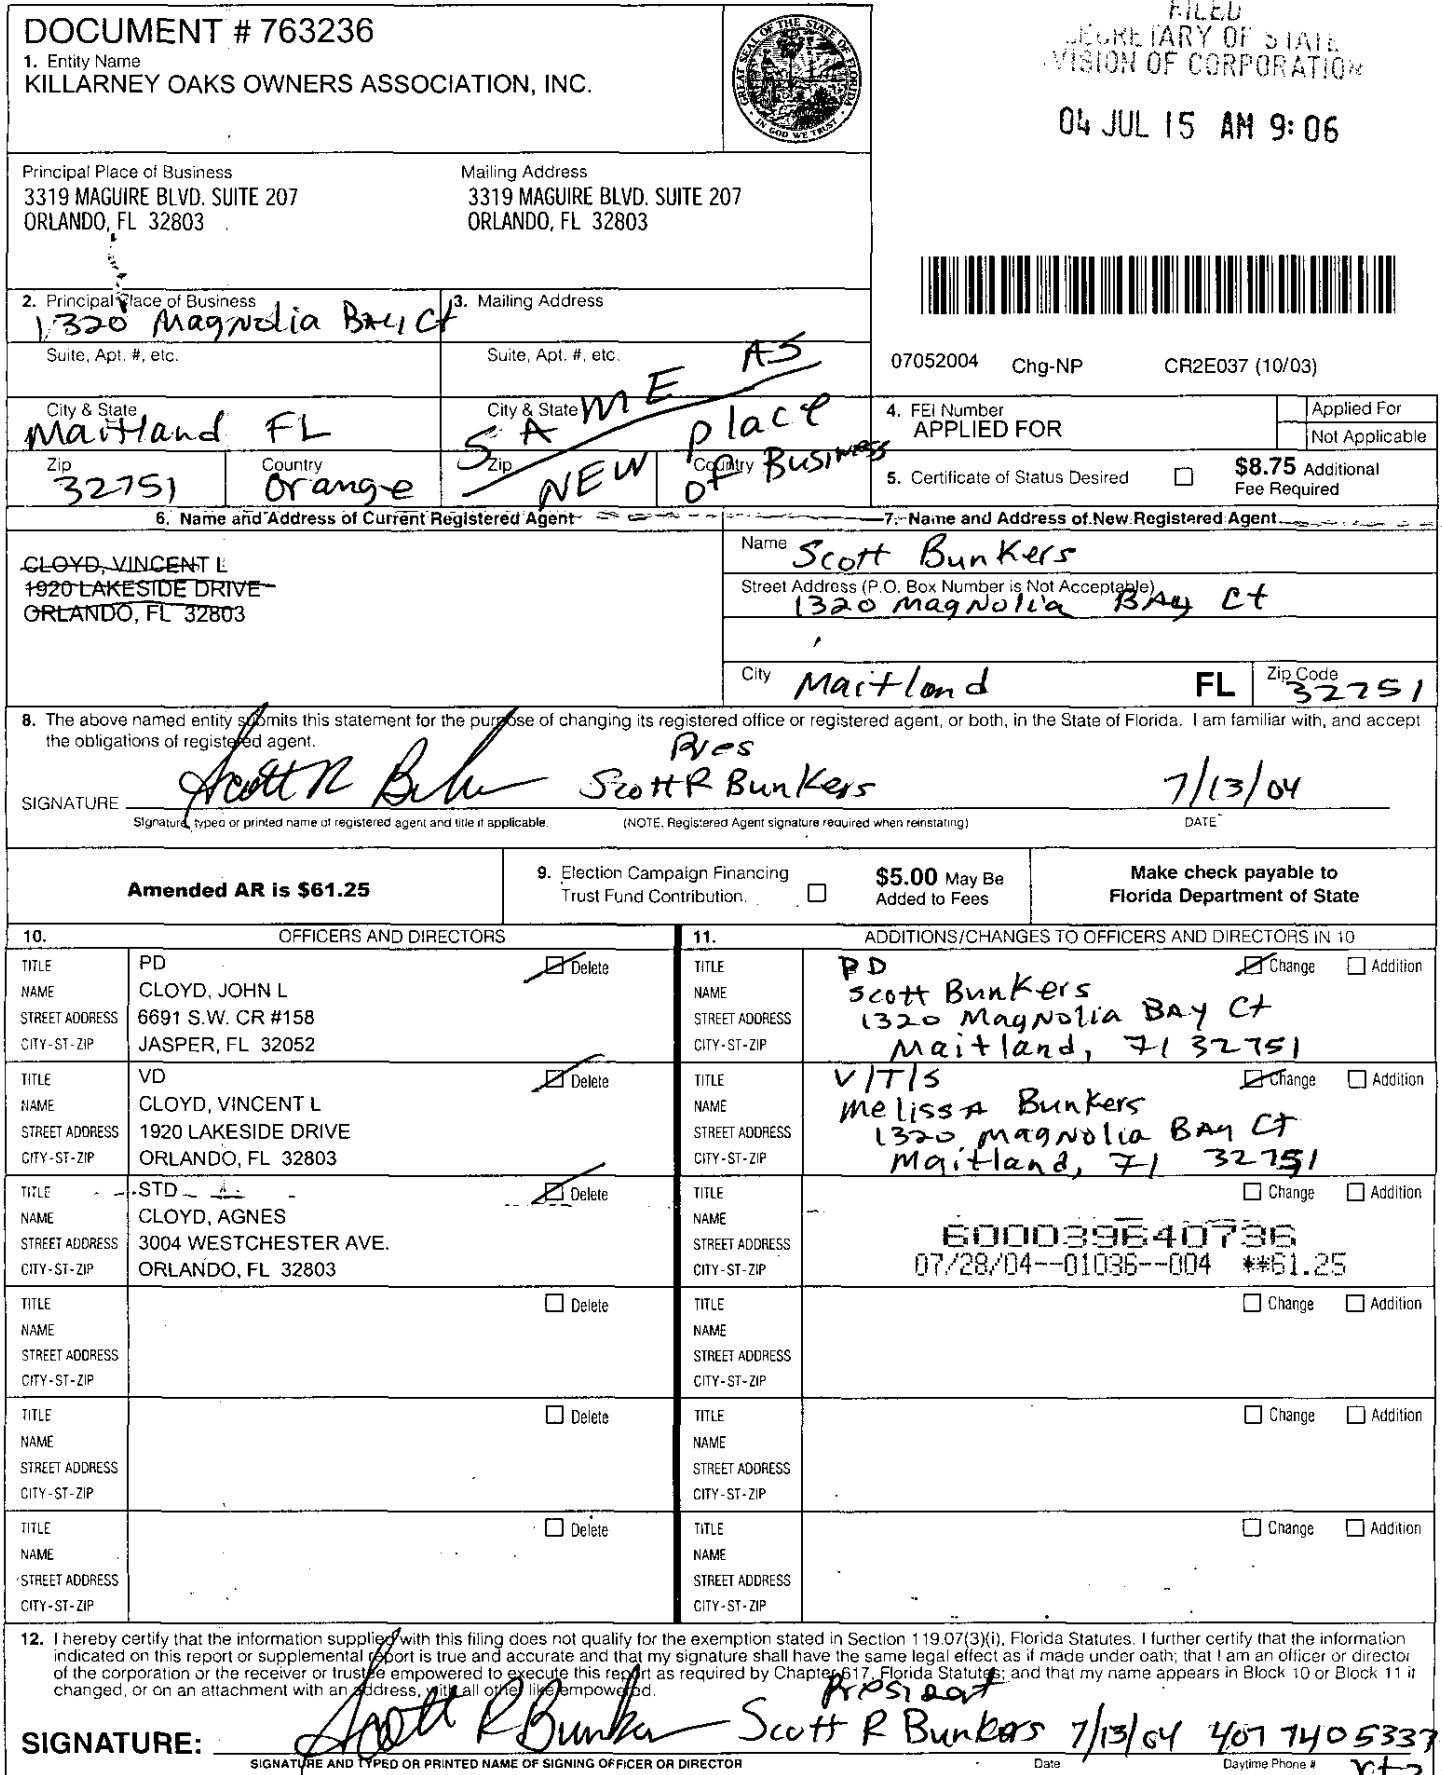 DOCUMENT # 763236
1. Entity Name
KILLARNEY OAKS OWNERS ASSOCIATION, INC.
GREAT SEAL OF THE STATE OF FLORIDA
IN GOD WE TRUST
FILED
SECRETARY OF STATE
VISION OF CORPORATION
04 JUL 15 AM 9:06
Principal Place of Business
3319 MAGUIRE BLVD. SUITE 207
ORLANDO, FL 32803
Mailing Address
3319 MAGUIRE BLVD. SUITE 207
ORLANDO, FL 32803
2. Principal Place of Business
1320 Magnolia BAy Ct
3. Mailing Address
Suite, Apt. #, etc.
Suite, Apt. #, etc.
City & State
Maitland FL
City & State
SAME AS
NEW place
of Business
Zip
32751
Country
Orange
Zip
Country
07052004 Chg-NP CR2E037 (10/03)
4. FEI Number
APPLIED FOR
Applied For
Not Applicable
5. Certificate of Status Desired
$8.75 Additional
Fee Required
6. Name and Address of Current Registered Agent
CLOYD, VINCENT L
1920 LAKESIDE DRIVE
ORLANDO, FL 32803
7. Name and Address of New Registered Agent
Name Scott Bunkers
Street Address (P.O. Box Number is Not Acceptable)
1320 Magnolia BAy Ct
City Maitland FL Zip Code 32751
8. The above named entity submits this statement for the purpose of changing its registered office or registered agent, or both, in the State of Florida. I am familiar with, and accept
the obligations of registered agent.
Pres
SIGNATURE Scott R Bunkers Scott R Bunkers 7/13/04
Signature, typed or printed name of registered agent and title if applicable. (NOTE. Registered Agent signature required when reinstating) DATE
Amended AR is $61.25
9. Election Campaign Financing
Trust Fund Contribution.
$5.00 May Be
Added to Fees
Make check payable to
Florida Department of State
10. OFFICERS AND DIRECTORS
TITLE PD Delete
NAME CLOYD, JOHN L
STREET ADDRESS 6691 S.W. CR #158
CITY-ST-ZIP JASPER, FL 32052
TITLE VD Delete
NAME CLOYD, VINCENT L
STREET ADDRESS 1920 LAKESIDE DRIVE
CITY-ST-ZIP ORLANDO, FL 32803
TITLE STD Delete
NAME CLOYD, AGNES
STREET ADDRESS 3004 WESTCHESTER AVE.
CITY-ST-ZIP ORLANDO, FL 32803
TITLE Delete
NAME
STREET ADDRESS
CITY-ST-ZIP
TITLE Delete
NAME
STREET ADDRESS
CITY-ST-ZIP
TITLE Delete
NAME
STREET ADDRESS
CITY-ST-ZIP
11. ADDITIONS/CHANGES TO OFFICERS AND DIRECTORS IN 10
TITLE PD Change Addition
NAME Scott Bunkers
STREET ADDRESS 1320 Magnolia BAy Ct
CITY-ST-ZIP Maitland, Fl 32751
TITLE V/T/S Change Addition
NAME MelissA Bunkers
STREET ADDRESS 1320 Magnolia BAy Ct
CITY-ST-ZIP Maitland, Fl 32751
TITLE Change Addition
NAME
STREET ADDRESS 600039640736
CITY-ST-ZIP 07/28/04--01036--004 **61.25
TITLE Change Addition
NAME
STREET ADDRESS
CITY-ST-ZIP
TITLE Change Addition
NAME
STREET ADDRESS
CITY-ST-ZIP
TITLE Change Addition
NAME
STREET ADDRESS
CITY-ST-ZIP
12. I hereby certify that the information supplied with this filing does not qualify for the exemption stated in Section 119.07(3)(i), Florida Statutes. I further certify that the information
indicated on this report or supplemental report is true and accurate and that my signature shall have the same legal effect as if made under oath; that I am an officer or director
of the corporation or the receiver or trustee empowered to execute this report as required by Chapter 617, Florida Statutes; and that my name appears in Block 10 or Block 11 if
changed, or on an attachment with an address, with all other like empowered.
President
SIGNATURE: Scott R Bunkers Scott R Bunkers 7/13/04 407 740 5337
SIGNATURE AND TYPED OR PRINTED NAME OF SIGNING OFFICER OR DIRECTOR Date Daytime Phone #